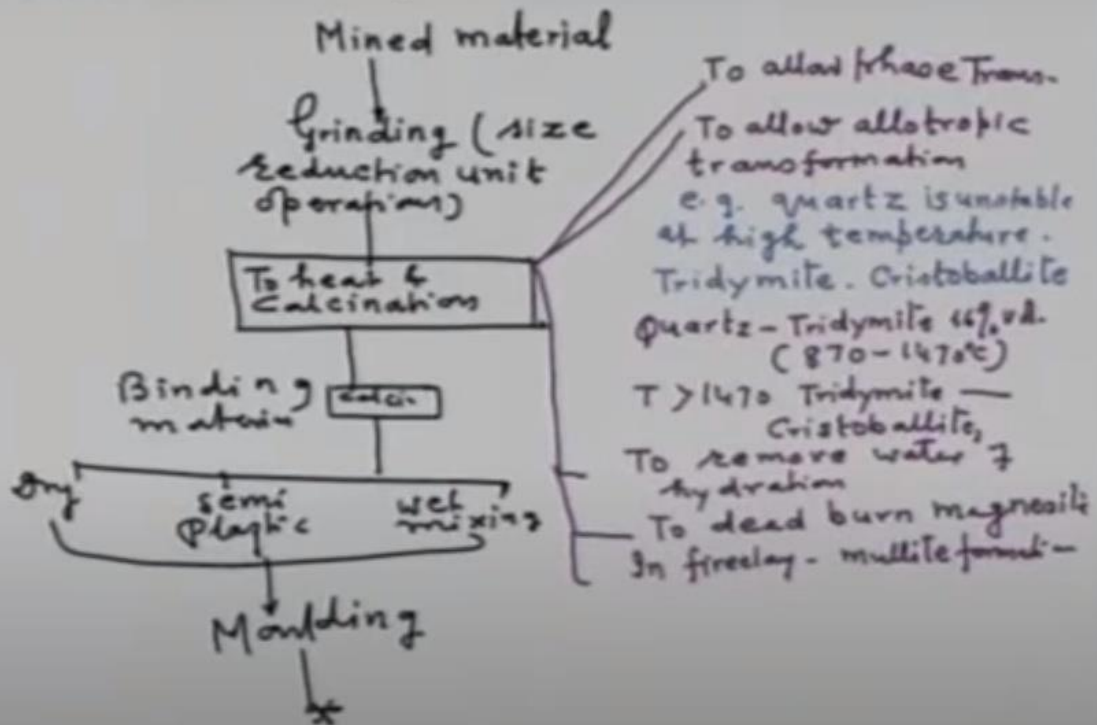 Mined material
Grinding (size
reduction unit
operations)
To heat &
Calcination
Binding
Calcin.
Dry
semi
Plastic
wet
mixing
Moulding
To allow phase Trans.
To allow allotropic
transformation
e.g. quartz is unstable
at high temperature.
Tridymite. Cristoballite
Quartz - Tridymite
(870-1470°C)
T > 1470 Tridymite —
Cristoballite,
To remove water of
hydration
To dead burn magnesite
In fireclay - mullite